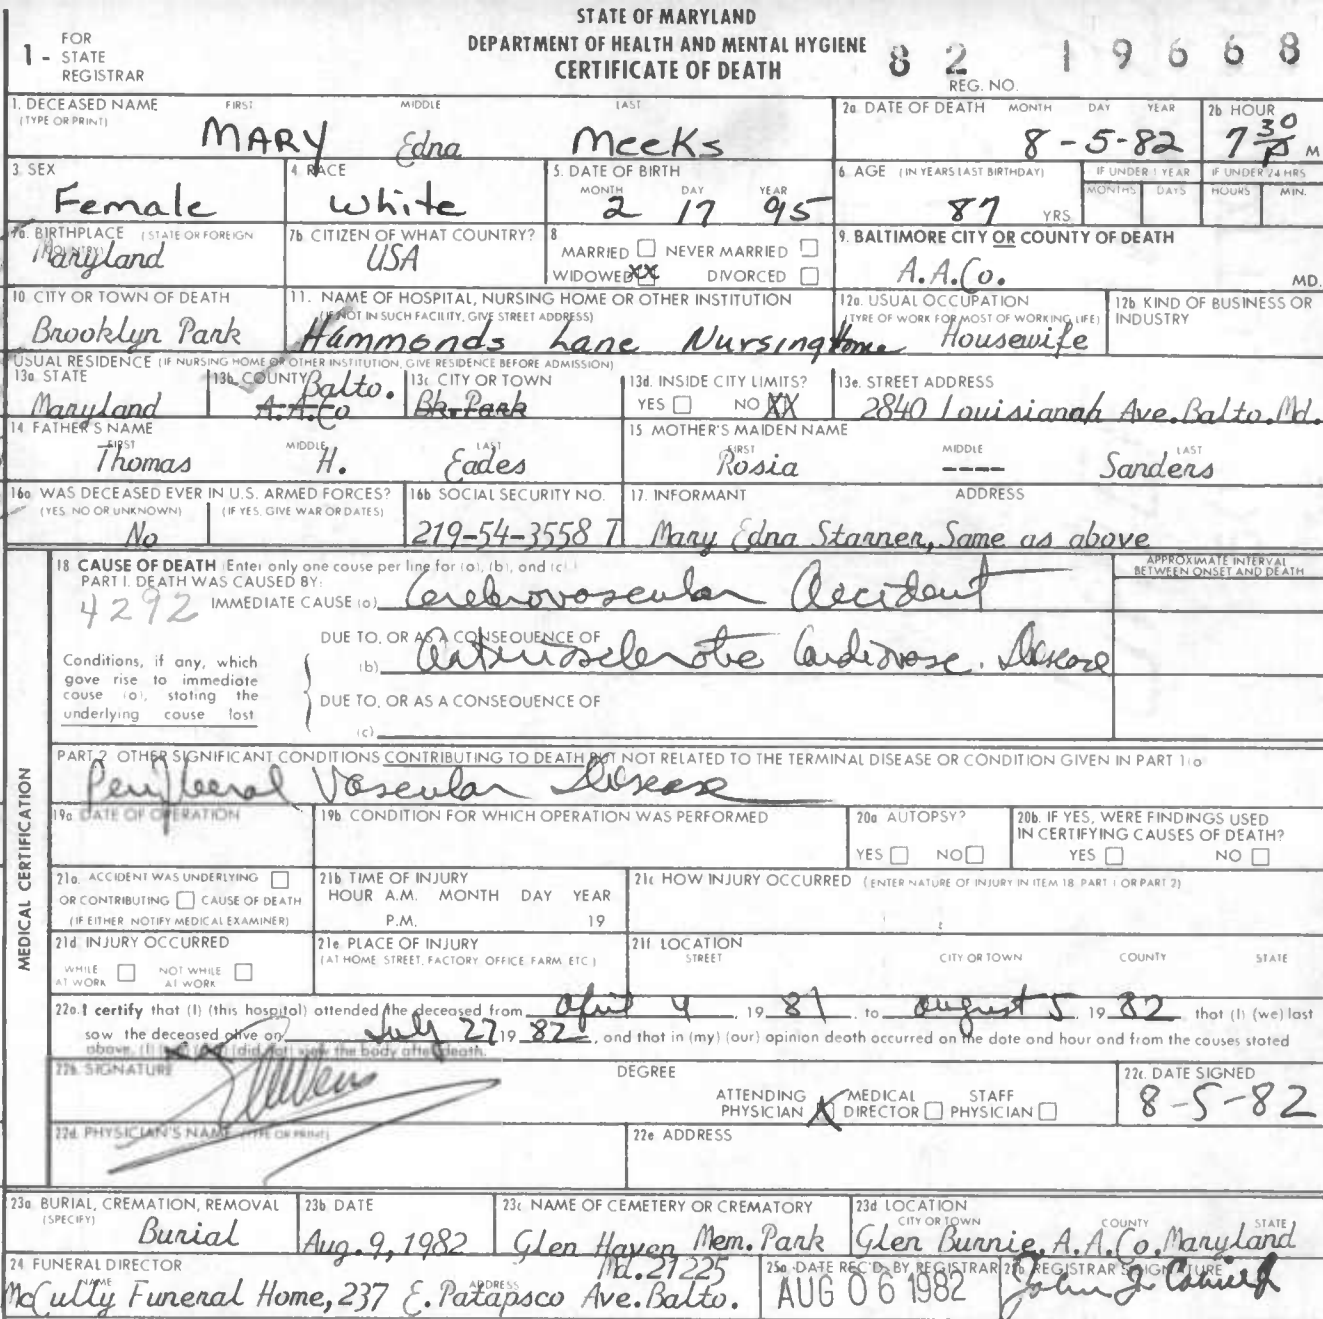 STATE OF MARYLAND
DEPARTMENT OF HEALTH AND MENTAL HYGIENE
CERTIFICATE OF DEATH
1 - FOR STATE REGISTRAR
82 19668
REG. NO.
1. DECEASED NAME (TYPE OR PRINT) FIRST MIDDLE LAST
MARY Edna Meeks
2a. DATE OF DEATH MONTH DAY YEAR
8-5-82
2b. HOUR
7 30 P M
3. SEX
Female
4. RACE
White
5. DATE OF BIRTH MONTH DAY YEAR
2 17 95
6. AGE (IN YEARS LAST BIRTHDAY)
87 YRS.
IF UNDER 1 YEAR MONTHS DAYS
IF UNDER 24 HRS HOURS MIN.
7a. BIRTHPLACE (STATE OR FOREIGN COUNTRY)
Maryland
7b. CITIZEN OF WHAT COUNTRY?
USA
8. MARRIED NEVER MARRIED
WIDOWED XX DIVORCED
9. BALTIMORE CITY OR COUNTY OF DEATH
A.A.Co. MD.
10. CITY OR TOWN OF DEATH
Brooklyn Park
11. NAME OF HOSPITAL, NURSING HOME OR OTHER INSTITUTION
(IF NOT IN SUCH FACILITY, GIVE STREET ADDRESS)
Hammonds Lane Nursing Home
12a. USUAL OCCUPATION
(TYPE OF WORK FOR MOST OF WORKING LIFE)
Housewife
12b. KIND OF BUSINESS OR INDUSTRY
USUAL RESIDENCE (IF NURSING HOME OR OTHER INSTITUTION, GIVE RESIDENCE BEFORE ADMISSION)
13a. STATE
Maryland
13b. COUNTY Balto.
A.A.Co
13c. CITY OR TOWN
Bk. Park
13d. INSIDE CITY LIMITS?
YES NO XX
13e. STREET ADDRESS
2840 Louisianah Ave. Balto. Md.
14. FATHER'S NAME FIRST MIDDLE LAST
Thomas H. Eades
15. MOTHER'S MAIDEN NAME FIRST MIDDLE LAST
Rosia ---- Sanders
16a. WAS DECEASED EVER IN U.S. ARMED FORCES?
(YES, NO OR UNKNOWN) (IF YES, GIVE WAR OR DATES)
No
16b. SOCIAL SECURITY NO.
219-54-3558 T
17. INFORMANT ADDRESS
Mary Edna Stanner, Same as above
18. CAUSE OF DEATH (Enter only one cause per line for (a), (b), and (c).)
APPROXIMATE INTERVAL BETWEEN ONSET AND DEATH
PART I. DEATH WAS CAUSED BY:
4292
IMMEDIATE CAUSE (a) Cerebrovascular Accident
DUE TO, OR AS A CONSEQUENCE OF
(b) Arteriosclerotic Cardiovasc. Disease
Conditions, if any, which
gave rise to immediate
cause (a), stating the
underlying cause last
DUE TO, OR AS A CONSEQUENCE OF
(c)
PART 2. OTHER SIGNIFICANT CONDITIONS CONTRIBUTING TO DEATH BUT NOT RELATED TO THE TERMINAL DISEASE OR CONDITION GIVEN IN PART 1(a)
Peripheral Vascular Disease
MEDICAL CERTIFICATION
19a. DATE OF OPERATION
19b. CONDITION FOR WHICH OPERATION WAS PERFORMED
20a. AUTOPSY?
YES NO
20b. IF YES, WERE FINDINGS USED
IN CERTIFYING CAUSES OF DEATH?
YES NO
21a. ACCIDENT WAS UNDERLYING
OR CONTRIBUTING CAUSE OF DEATH
(IF EITHER NOTIFY MEDICAL EXAMINER)
21b. TIME OF INJURY
HOUR A.M. MONTH DAY YEAR
P.M. 19
21c. HOW INJURY OCCURRED (ENTER NATURE OF INJURY IN ITEM 18, PART 1 OR PART 2)
21d. INJURY OCCURRED
WHILE AT WORK NOT WHILE AT WORK
21e. PLACE OF INJURY
(AT HOME, STREET, FACTORY, OFFICE, FARM, ETC.)
21f. LOCATION
STREET CITY OR TOWN COUNTY STATE
22a. I certify that (I) (this hospital) attended the deceased from April 4, 1981, to August 5, 1982, that (I) (we) last
saw the deceased alive on July 27 1982, and that in (my) (our) opinion death occurred on the date and hour and from the causes stated
above. (I) (did not) view the body after death.
22b. SIGNATURE
DEGREE
ATTENDING PHYSICIAN X MEDICAL DIRECTOR STAFF PHYSICIAN
22c. DATE SIGNED
8-5-82
22d. PHYSICIAN'S NAME (TYPE OR PRINT)
22e. ADDRESS
23a. BURIAL, CREMATION, REMOVAL (SPECIFY)
Burial
23b. DATE
Aug. 9, 1982
23c. NAME OF CEMETERY OR CREMATORY
Glen Haven Mem. Park
23d. LOCATION CITY OR TOWN COUNTY STATE
Glen Burnie, A.A.Co. Maryland
24. FUNERAL DIRECTOR NAME ADDRESS
McCully Funeral Home, 237 E. Patapsco Ave. Balto. Md. 21225
25a. DATE REC'D. BY REGISTRAR
AUG 06 1982
25b. REGISTRAR'S SIGNATURE
John J.